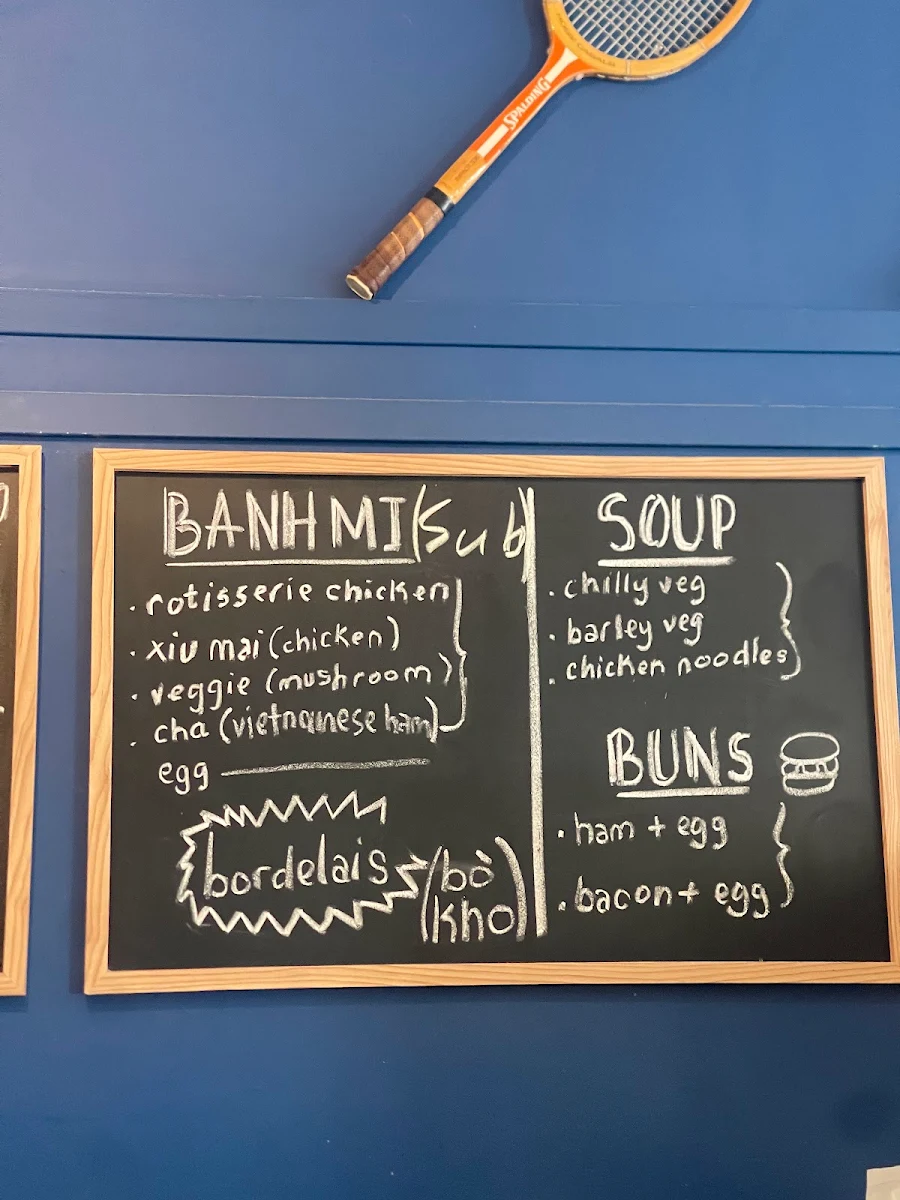 SPALDING
BANH MI (sub)
. rotisserie chicken
. xiu mai (chicken)
. veggie (mushroom)
. cha (vietnanese ham)
egg
bordelais (bò kho)
SOUP
. chilly veg
. barley veg
. chicken noodles
BUNS
. ham + egg
. bacon + egg